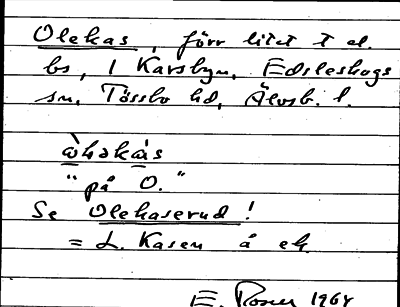 Olekas, förr litet t el.
bs, I Karsbyn, Edsleskogs
sn, Tössbo hd, Älvsb. l.
"på O."
Se Olekaserud!
= L. Kasen å ek
E. 1964